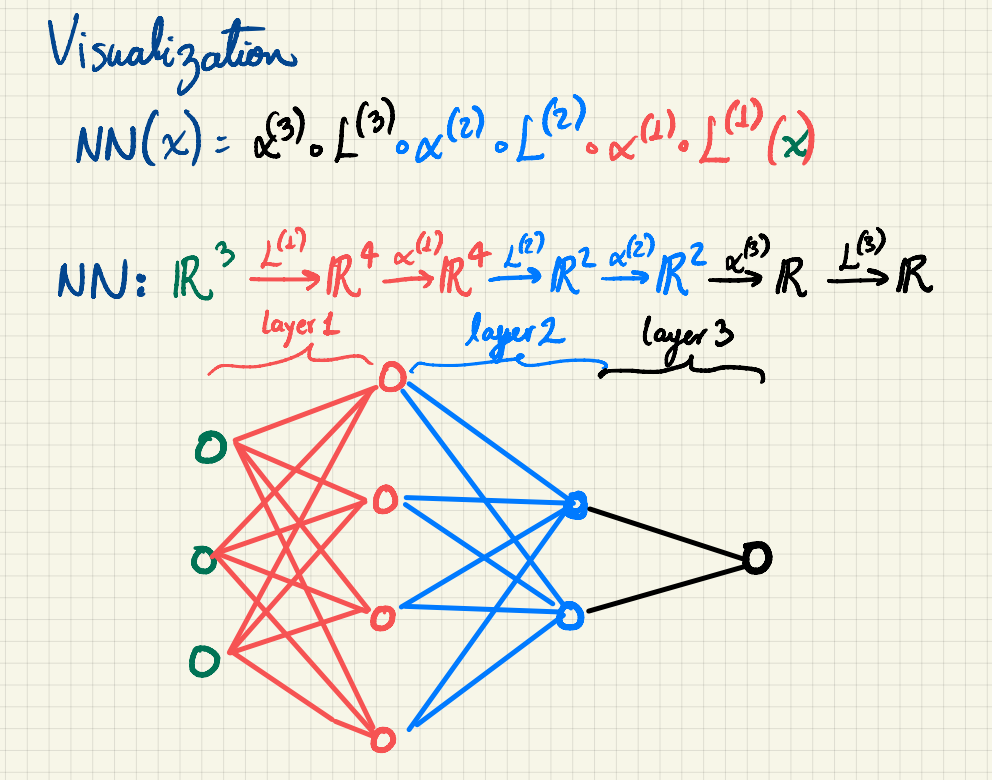 Visualization
NN(x) = α⁽³⁾ ∘ L⁽³⁾ ∘ α⁽²⁾ ∘ L⁽²⁾ ∘ α⁽¹⁾ ∘ L⁽¹⁾(x)
NN: ℝ³ —L⁽¹⁾→ ℝ⁴ —α⁽¹⁾→ ℝ⁴ —L⁽²⁾→ ℝ² —α⁽²⁾→ ℝ² —α⁽³⁾→ ℝ —L⁽³⁾→ ℝ
layer 1 layer 2 layer 3